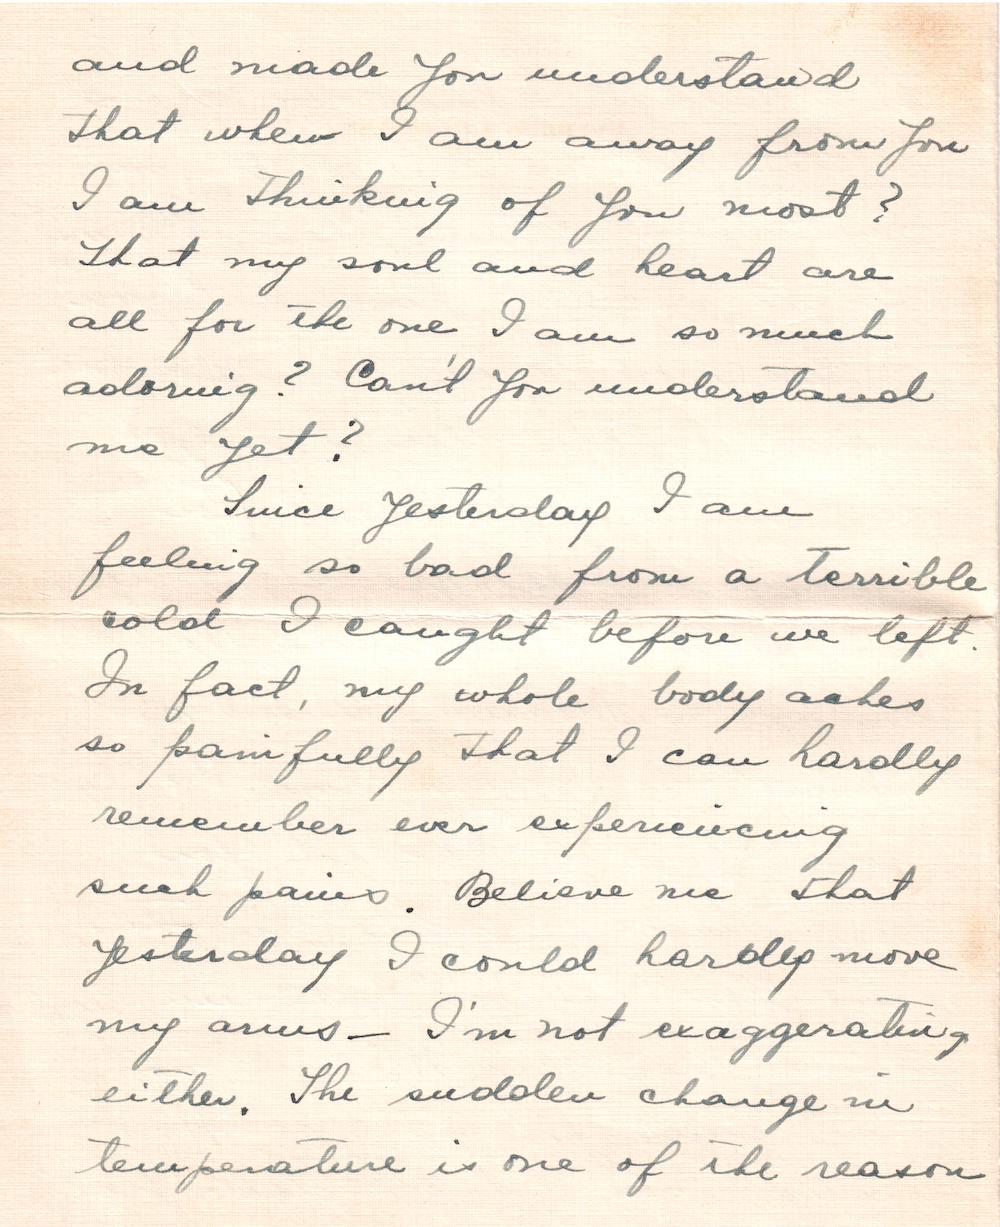 and made you understand
that when I am away from you
I am thinking of you most?
That my soul and heart are
all for the one I am so much
adoring? Can't you understand
me yet?
Since yesterday I am
feeling so bad from a terrible
cold I caught before we left.
In fact, my whole body aches
so painfully that I can hardly
remember ever experiencing
such pains. Believe me that
yesterday I could hardly move
my arms — I'm not exaggerating
either. The sudden change in
temperature is one of the reason